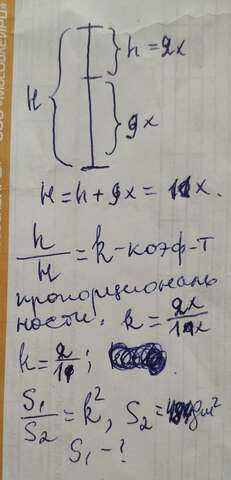 h = 2x
H
9x
H = h + 9x = 11x.
h/H = k - коэф-т
пропорциональ
ности. k = 2x/11x
k = 2/11;
S₁/S₂ = k², S₂ = дм²
S₁ - ?